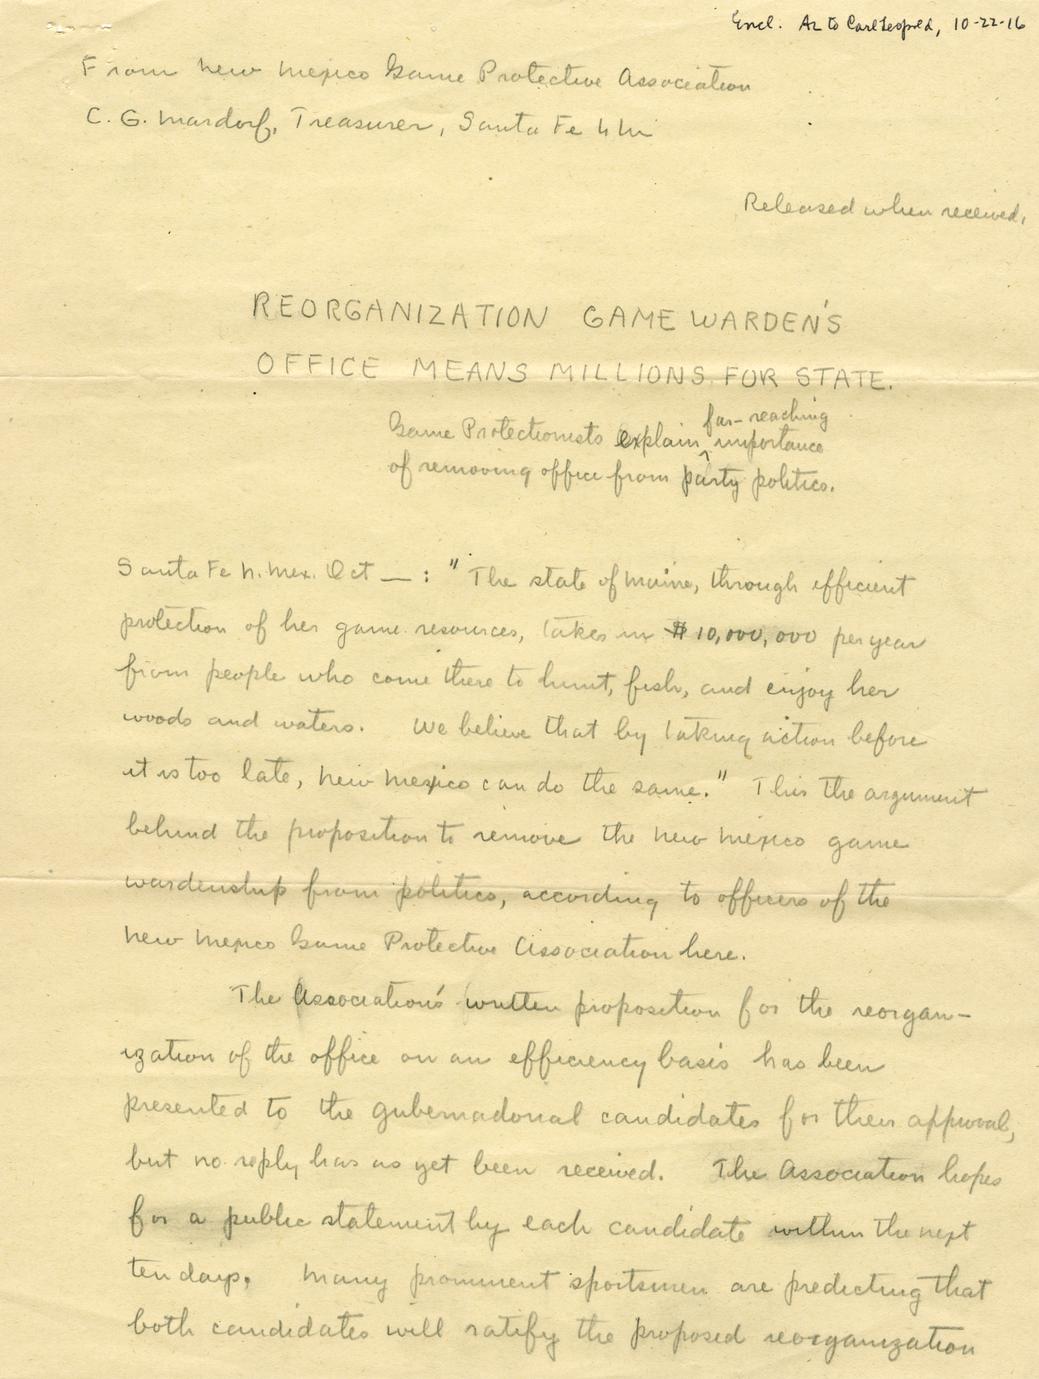 Encl. AL to Carl Leopold, 10-22-16
From New Mexico Game Protective Association
C. G. Mardorf, Treasurer, Santa Fe N M
Released when received,
REORGANIZATION GAME WARDEN'S
OFFICE MEANS MILLIONS FOR STATE.
far-reaching
Game Protectionists explain ^ importance
of removing office from party politics.
Santa Fe N. Mex. Oct — : "The state of Maine, through efficient
protection of her game resources, takes in $10,000,000 per year
from people who come there to hunt, fish, and enjoy her
woods and waters. We believe that by taking action before
it is too late, New Mexico can do the same." This the argument
behind the proposition to remove the New Mexico game
wardenship from politics, according to officers of the
New Mexico Game Protective Association here.
The Association's written proposition for the reorgan-
ization of the office on an efficiency basis has been
presented to the gubernadorial candidates for their approval,
but no reply has as yet been received. The Association hopes
for a public statement by each candidate within the next
ten days. Many prominent sportsmen are predicting that
both candidates will ratify the proposed reorganization